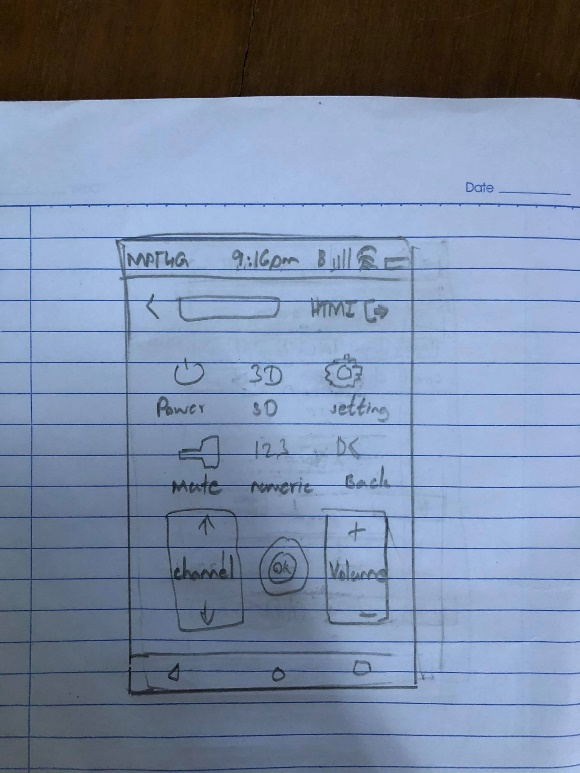 Date
MPT4G 9:16pm B
< HTMI
3D
Power 3D setting
123
Mute numeric Back
channel OK Volume